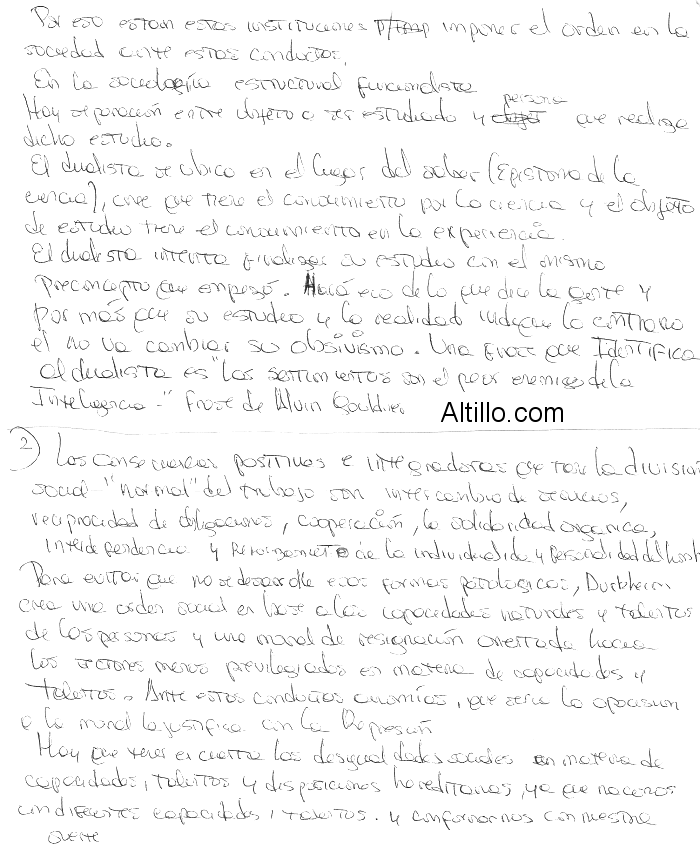 Por eso estan estas instituciones p/ imponer el orden en la
sociedad ante estas conductas.
En la sociología estructural funcionalista
Hay separación entre objeto a ser estudiado y persona que realiza
dicho estudio.
El dualista se ubica en el lugar del saber (Epistome de la
ciencia), cree que tiene el conocimiento por la ciencia y el objeto
de estudio tiene el conocimiento en la experiencia.
El dualista intenta finalizar su estudio con el mismo
preconcepto que empezó. Hará eco de lo que dice la gente y
por más que su estudio y la realidad indique lo contrario
el no va cambiar su obsivismo. Una frase que Identifica
al dualista es "los sentimientos son el peor enemigo de la
Inteligencia-" frase de Alvin Gouldner
Altillo.com
2) Las consecuencias positivas e integradoras que trae la division
social "normal" del trabajo son intercambio de servicios,
reciprocidad de obligaciones, cooperación, la solidaridad organica,
Interdependencia y Reforzamiento de la individualidad y Personalidad del homb
Para evitar que no se desarrolle esas formas patologicas, Durkheim
crea una orden social en base a las capacidades naturales y talentos
de las personas y una moral de resignación orientada hacia
los sectores menos previlegiados en materia de capacidades y
talentos. Ante estas conductas anomicas, que seria la oposicion
a la moral la justifica con la Represion
Hay que tener en cuenta las desigualdades sociales en materia de
capacidades, talentos y disposiciones hereditarias, ya que nacemos
con diferentes capacidades, talentos. y conformarnos con nuestra
suerte